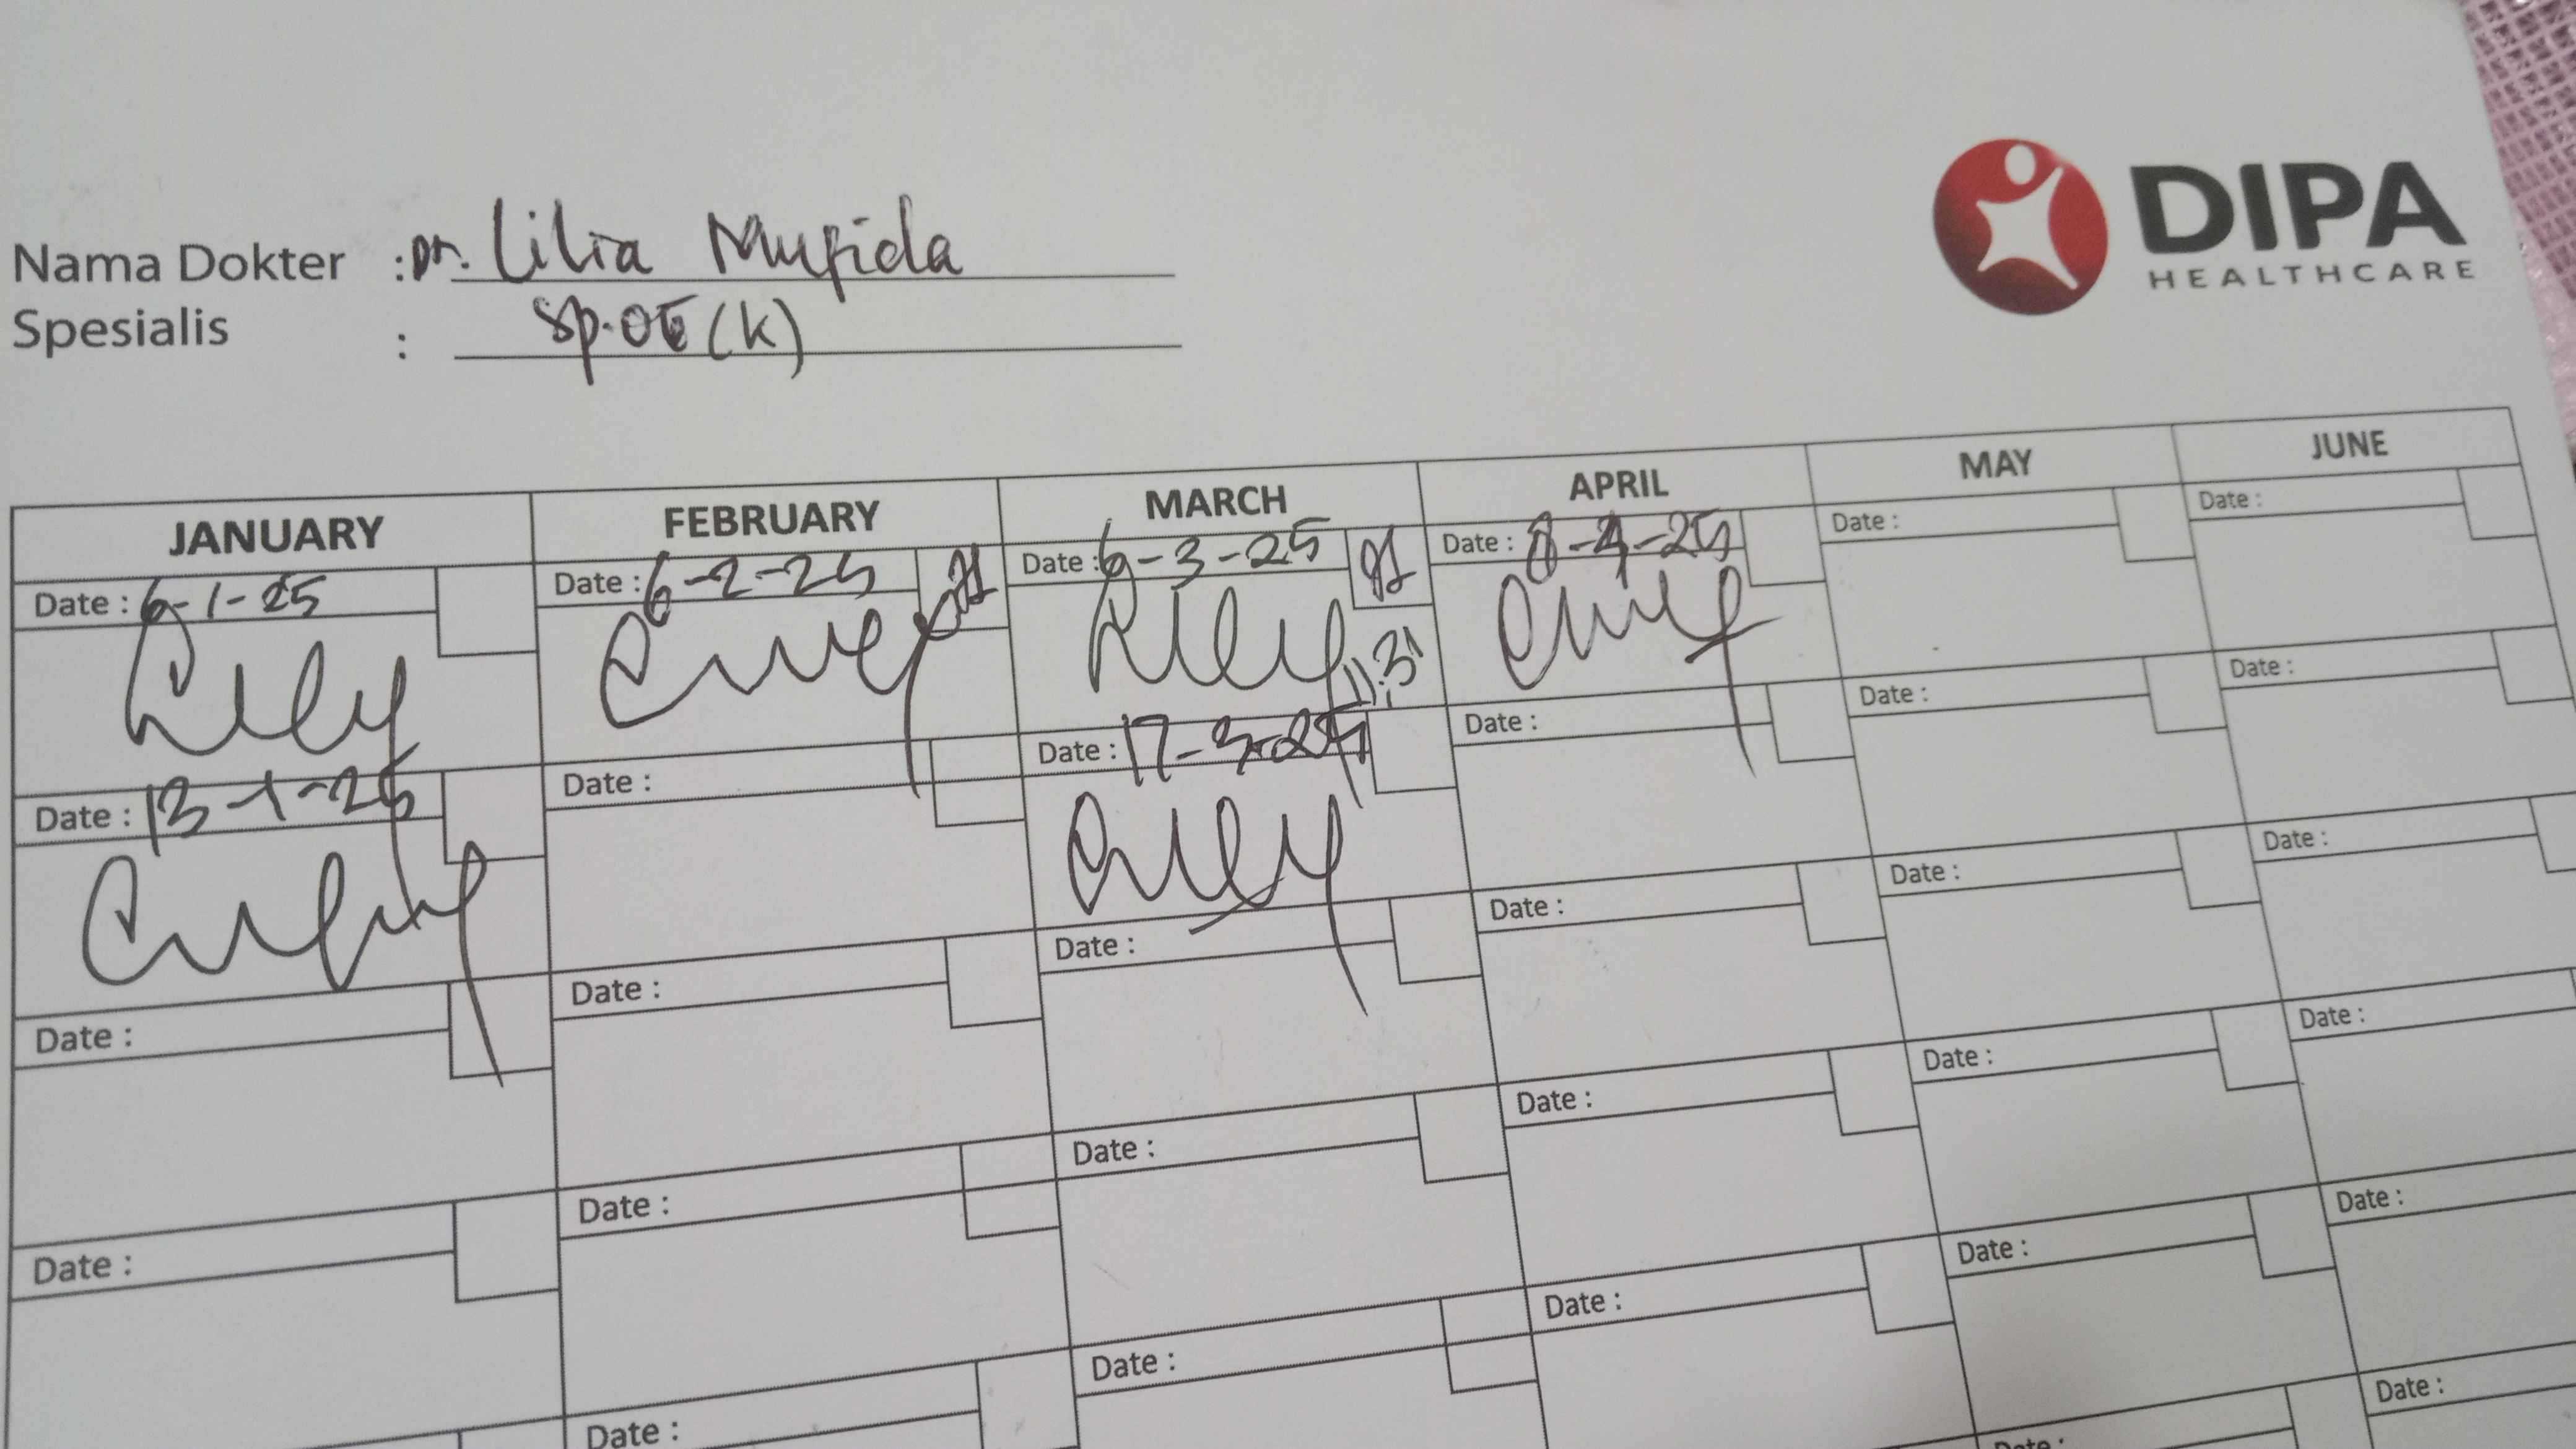 DIPA
HEALTHCARE
Nama Dokter : Dr. Lilia Mufida
Spesialis : Sp.OG (K)
JANUARY FEBRUARY MARCH APRIL MAY JUNE
Date : 6-1-25 Date : 6-2-25 Date : 6-3-25 Date : 8-4-25 Date : Date :
11:31
Date : 13-1-25 Date : Date : 17-3-25 Date : Date : Date :
Date : Date : Date : Date : Date : Date :
Date : Date : Date : Date : Date : Date :
Date : Date : Date : Date : Date :
Date :